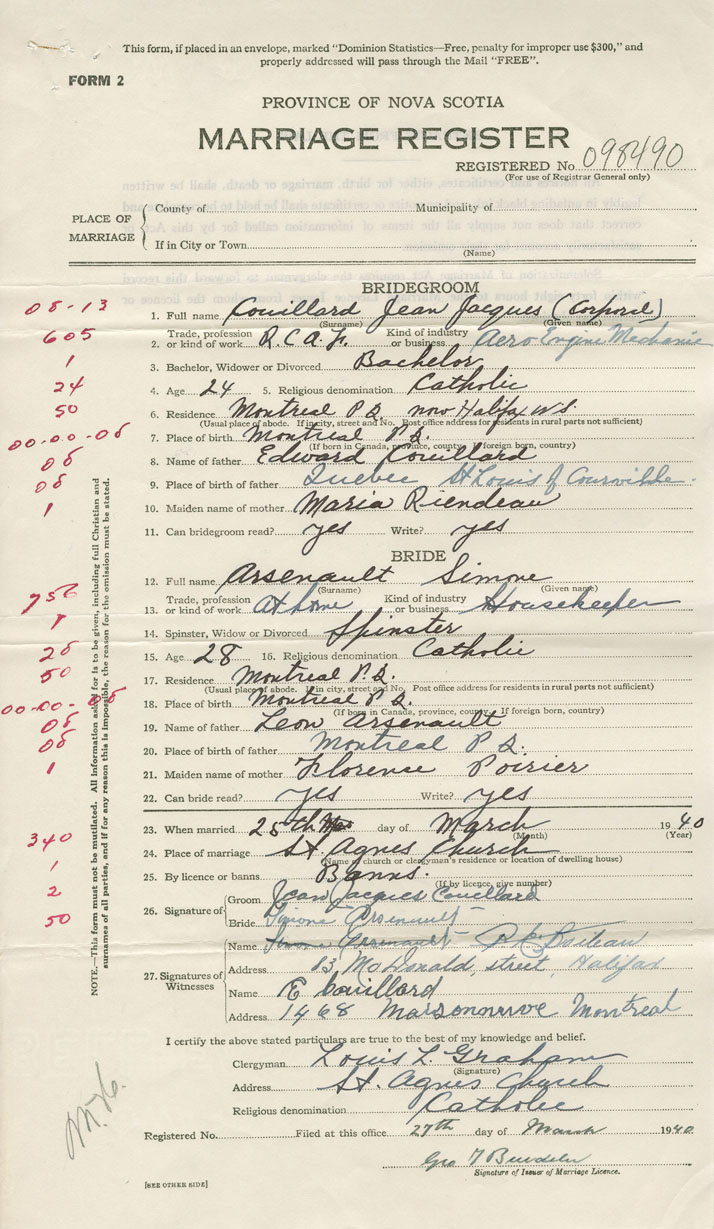 This form, if placed in an envelope, marked "Dominion Statistics—Free, penalty for improper use $300," and
properly addressed will pass through the Mail "FREE".
FORM 2
PROVINCE OF NOVA SCOTIA
MARRIAGE REGISTER
REGISTERED No. 098490
(For use of Registrar General only)
PLACE OF MARRIAGE
County of Municipality of
If in City or Town
(Name)
BRIDEGROOM
08-13
1. Full name Couillard Jean Jacques (Corporal)
(Surname) (Given name)
605
2. Trade, profession or kind of work R.C.A.F. Kind of industry or business Aero Engine Mechanic
1
3. Bachelor, Widower or Divorced Bachelor
24
4. Age 24 5. Religious denomination Catholic
50
6. Residence Montreal P.Q. now Halifax N.S.
(Usual place of abode. If in city, street and No. Post office address for residents in rural parts not sufficient)
00-00-05
7. Place of birth Montreal P.Q.
(If born in Canada, province, county. If foreign born, country)
05
8. Name of father Edward Couillard
05
9. Place of birth of father Quebec St Louis of Courville
1
10. Maiden name of mother Maria Riendeau
11. Can bridegroom read? yes Write? yes
BRIDE
12. Full name Arsenault Simone
(Surname) (Given name)
756
13. Trade, profession or kind of work At home Kind of industry or business Housekeeper
1
14. Spinster, Widow or Divorced Spinster
28
15. Age 28 16. Religious denomination Catholic
50
17. Residence Montreal P.Q.
(Usual place of abode. If in city, street and No. Post office address for residents in rural parts not sufficient)
00-00-05
18. Place of birth Montreal P.Q.
(If born in Canada, province, county. If foreign born, country)
05
19. Name of father Leon Arsenault
05
20. Place of birth of father Montreal P.Q.
1
21. Maiden name of mother Florence Poirier
22. Can bride read? yes Write? yes
23. When married 25th day of March 1940
(Month) (Year)
340
24. Place of marriage St. Agnes Church
(Name of church or clergyman's residence or location of dwelling house)
1
25. By licence or banns Banns.
(If by licence, give number)
2
26. Signature of Groom Jean Jacques Couillard
50
Bride Simone Arsenault
27. Signatures of Witnesses
Name Simone Arsenault
Address 13, McDonald, street, Halifax
Name E Couillard
Address 1468 Maisonneuve Montreal
I certify the above stated particulars are true to the best of my knowledge and belief.
Clergyman Louis L. Graham
(Signature)
Address St. Agnes Church
Religious denomination Catholic
Registered No. Filed at this office 27th day of March 1940
Geo
Signature of Issuer of Marriage Licence.
[SEE OTHER SIDE]
NOTE.—This form must not be mutilated. All information asked for is to be given, including full Christian and
surnames of all parties, and if for any reason this is impossible, the reason for the omission must be stated.